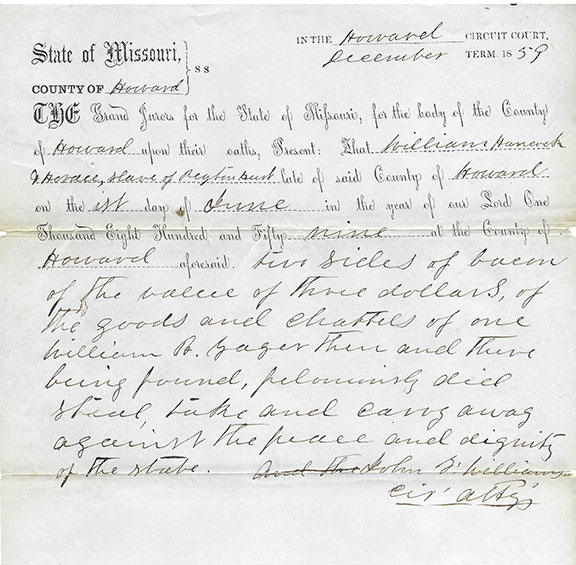 IN THE Howard CIRCUIT COURT,
December TERM, 1859
State of Missouri, } SS
COUNTY OF Howard
THE Grand Jurors for the State of Missouri, for the body of the County
of Howard upon their oaths, Present: That William Hancock
& Horace, slave of Peyton late of said County of Howard
on the 1st day of June in the year of our Lord One
Thousand Eight Hundred and Fifty nine at the County of
Howard aforesaid. two sides of bacon
of the value of three dollars, of
the goods and chattels of one
William B. Zager then and there
being found, feloniously did
steal, take and carry away
against the peace and dignity
of the state. And the John D. Williams
Cir' Atty'